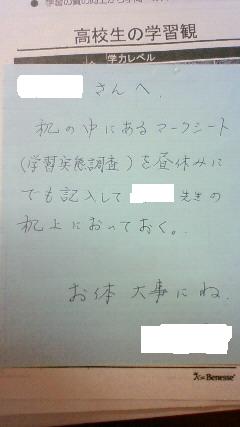 高校生の学習観
学力レベル
さんへ、
机の中にあるマークシート
(学習実態調査)を昼休みに
でも記入して 先生の
机上においておく。
お体 大事にね。
Benesse